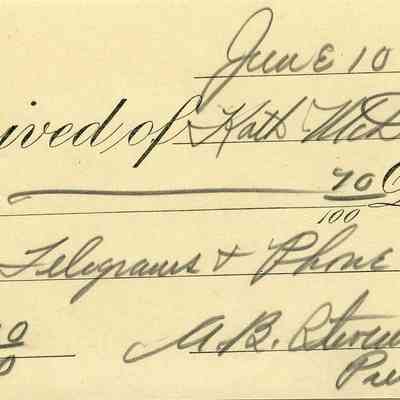 June 10
ived of Kath McK
70
100
Telegrams + Phone
A. B. Steven
Pre